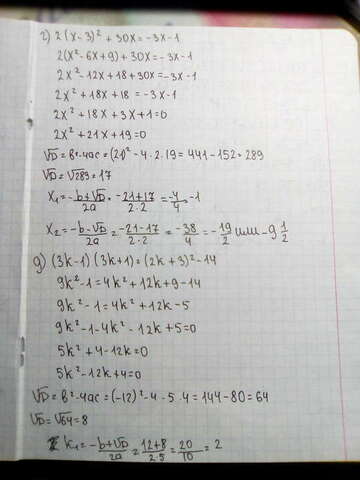 г) 2(x-3)² + 30x = -3x-1
2(x²-6x+9) + 30x = -3x-1
2x²-12x+18+30x = -3x-1
2x²+18x+18 = -3x-1
2x²+18x+3x+1=0
2x²+21x+19=0
√D = в²-4ac = (21)²-4·2·19 = 441-152 = 289
√D = √289 = 17
x₁ = -b+√D/2a = -21+17/2·2 = -4/4 = -1
x₂ = -b-√D/2a = -21-17/2·2 = -38/4 = -19/2 или -9 1/2
g) (3k-1)(3k+1) = (2k+3)²-14
9k²-1 = 4k²+12k+9-14
9k²-1 = 4k²+12k-5
9k²-1-4k²-12k+5=0
5k²+4-12k=0
5k²-12k+4=0
√D = в²-4ac = (-12)²-4·5·4 = 144-80 = 64
√D = √64 = 8
k₁ = -b+√D/2a = 12+8/2·5 = 20/10 = 2